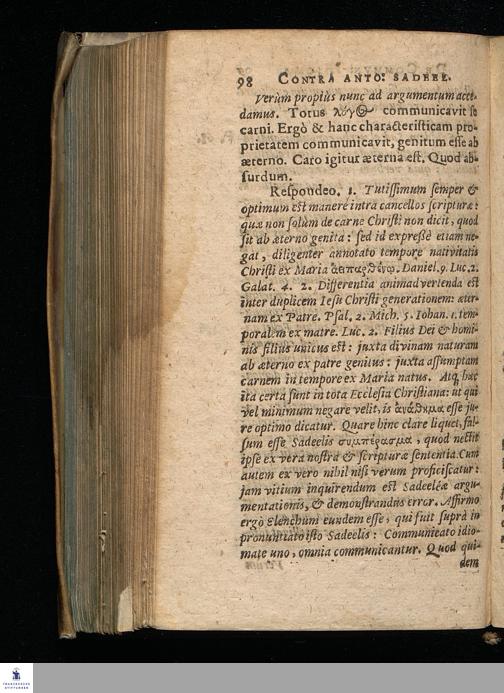 98 CONTRA ANTO: SADEEL.
Verùm propiùs nunc ad argumentum acce-
damus. Totus λόγος communicavit se
carni. Ergò & hanc characteristicam pro-
prietatem communicavit, genitum esse ab
æterno. Caro igitur æterna est. Quod ab-
surdum.
Respondeo. 1. Tutissimum semper &
optimum est manere intra cancellos scripturæ:
quæ non solùm de carne Christi non dicit, quod
sit ab æterno genita: sed id expressè etiam ne-
gat, diligenter annotato tempore nativitatis
Christi ex Maria Daniel. 9. Luc. 2.
Galat. 4. 2. Differentia animadvertenda est
inter duplicem Iesu Christi generationem: æter-
nam ex Patre. Psal. 2. Mich. 5. Iohan. 1. tem-
poralem ex matre. Luc. 2. Filius Dei & homi-
nis filius unicus est: juxta divinam naturam
ab æterno ex patre genitus: juxta assumptam
carnem in tempore ex Maria natus. Atq; hæc
ita certa sunt in tota Ecclesia Christiana: ut qui
vel minimum negare velit, is ἀνάθεμα esse ju-
re optimo dicatur. Quare hinc clare liquet, fal-
sum esse Sadeelis συμπέρασμα, quod nectit
ipse ex vera nostra & scripturæ sententia. Cum
autem ex vero nihil nisi verum proficiscatur:
jam vitium inquirendum est Sadeeleæ argu-
mentationis, & demonstrandus error. Affirmo
ergò Elenchum eundem esse, qui fuit suprà in
pronuntiato isto Sadeelis: Communicato idio-
mate uno, omnia communicantur. Quod qui-
dem